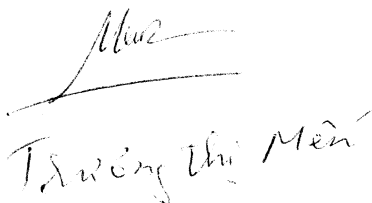 Trương Thị Mến